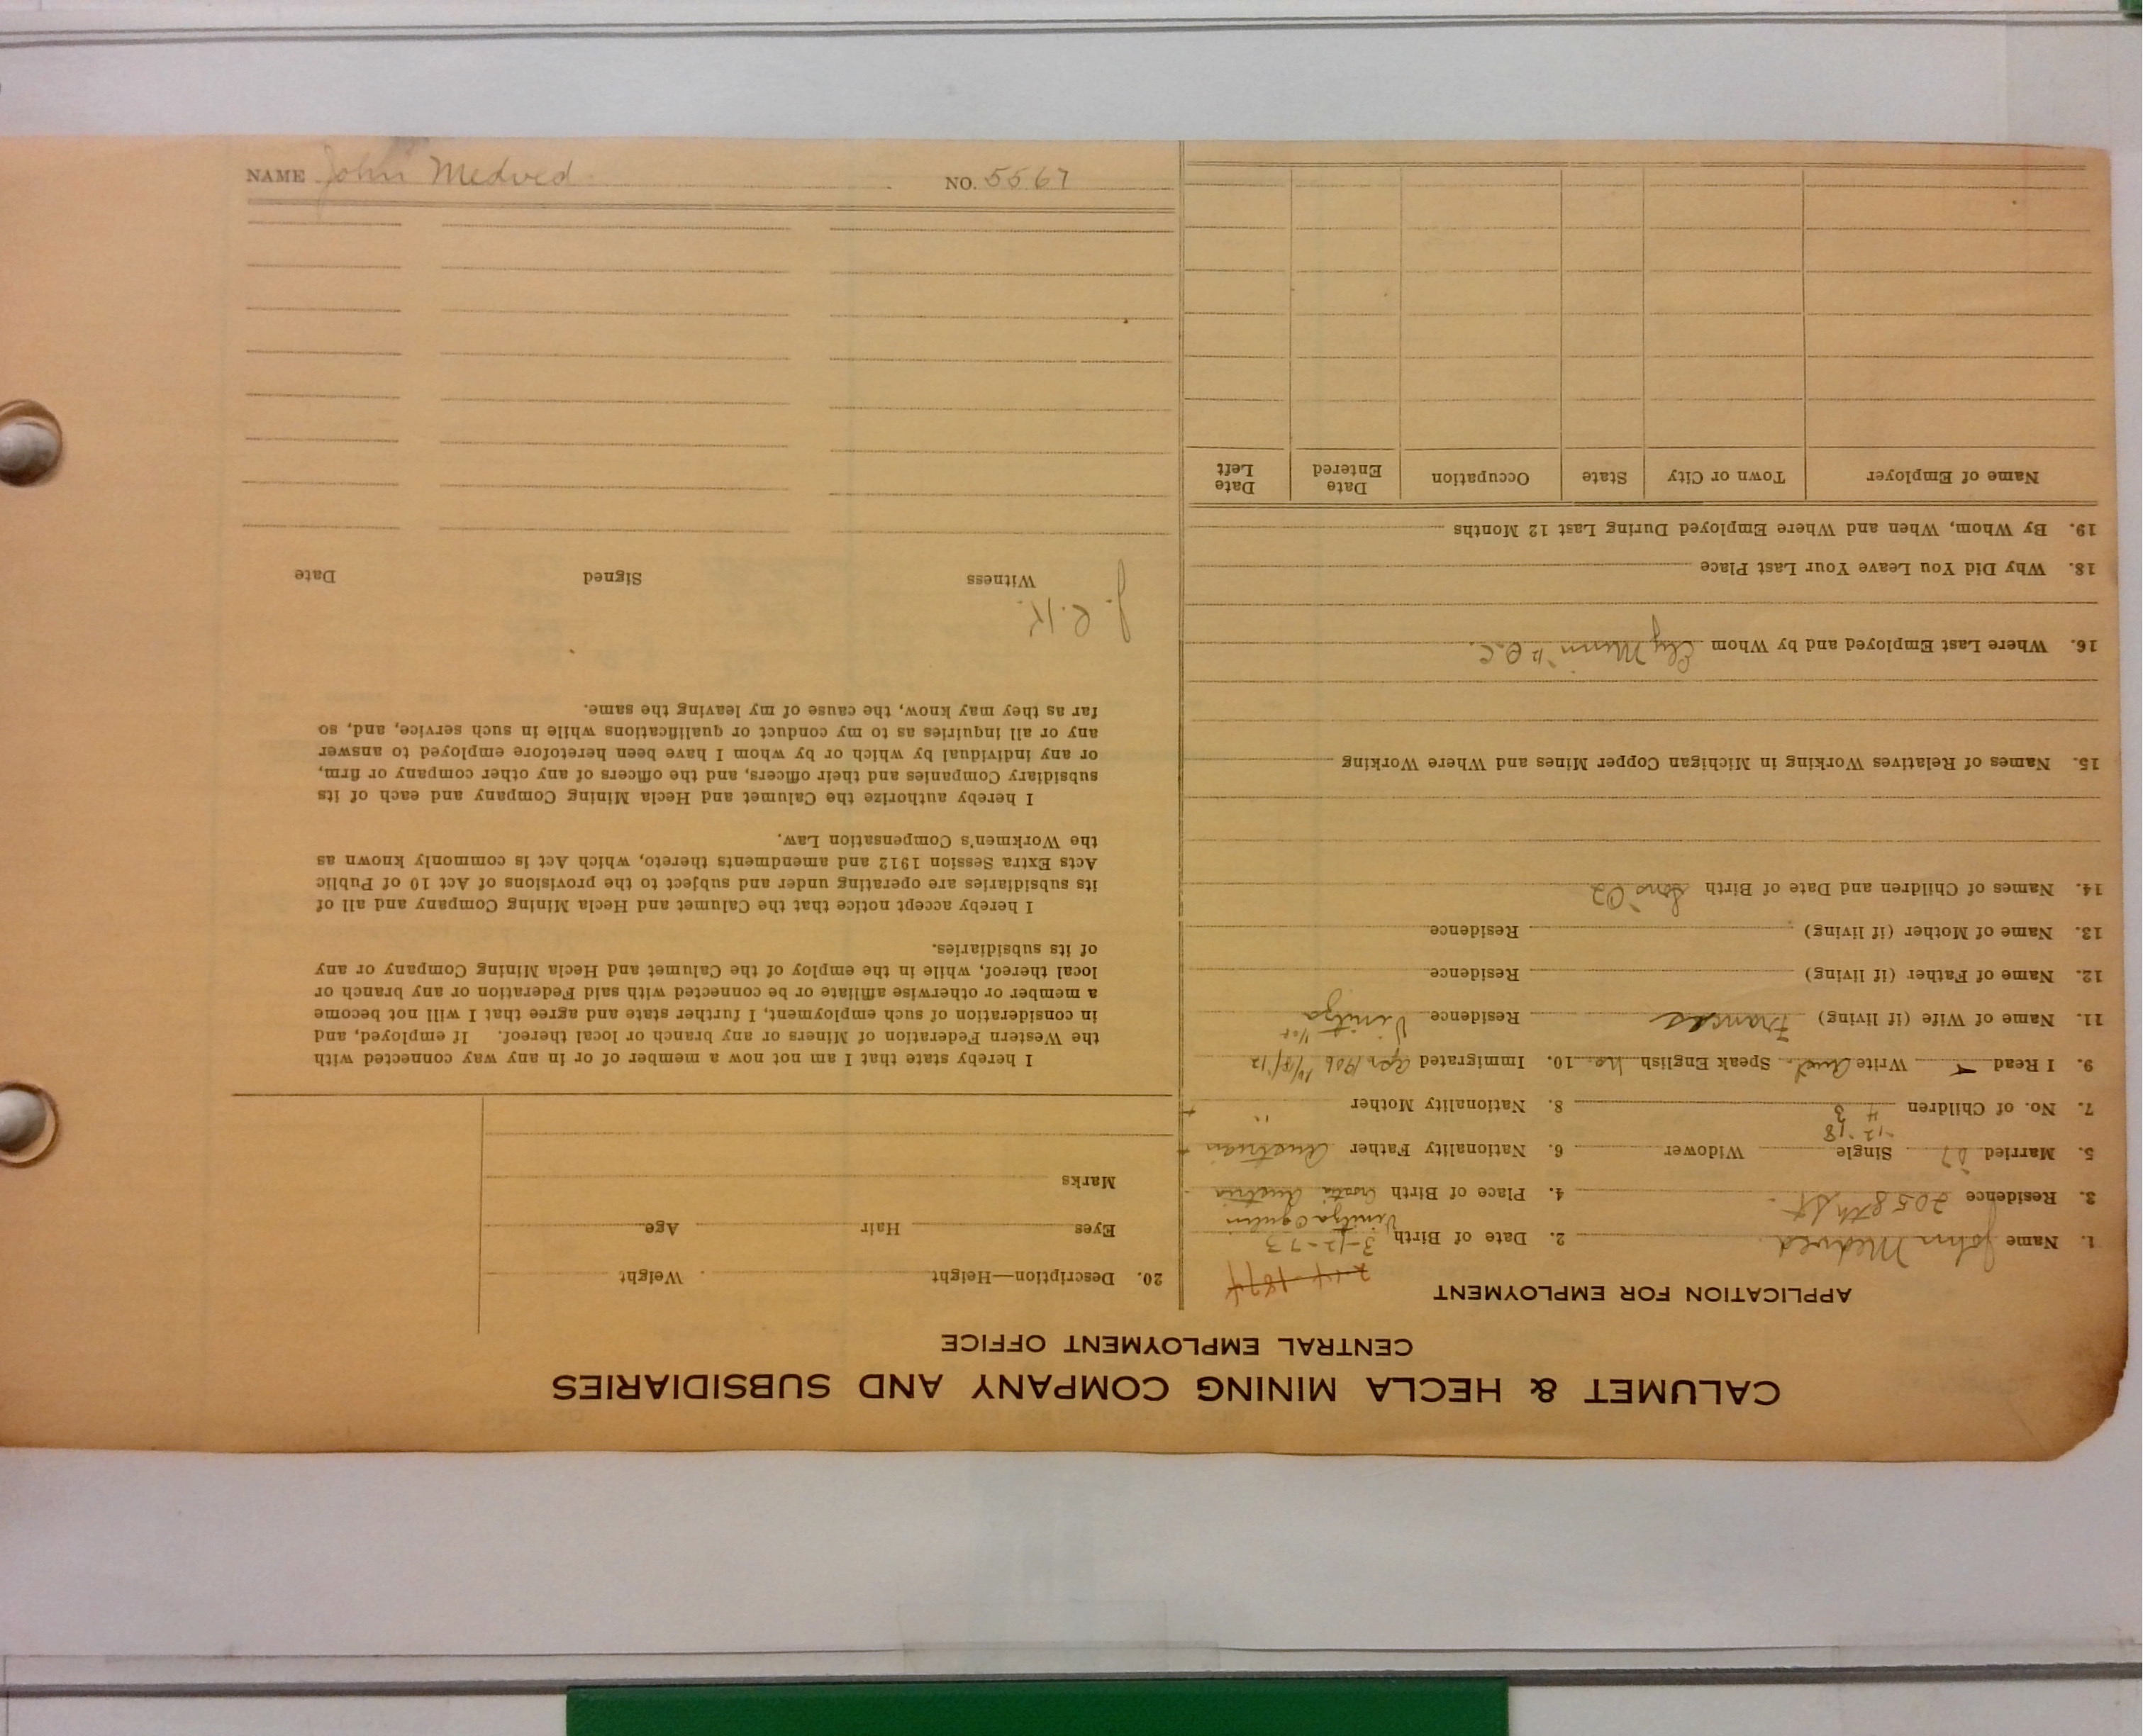 CALUMET & HECLA MINING COMPANY AND SUBSIDIARIES
CENTRAL EMPLOYMENT OFFICE
APPLICATION FOR EMPLOYMENT
1. Name John Medved 2. Date of Birth 3-12-73
3. Residence 2058 8th St. 4. Place of Birth Croatia Austria
5. Married Single Widower 6. Nationality Father Austrian
12 18
7. No. of Children 4 3 8. Nationality Mother "
9. I Read Write Aust. Speak English no 10. Immigrated Apr 1906
11. Name of Wife (if living) Frances Residence Vinitza
12. Name of Father (if living) Residence
13. Name of Mother (if living) Residence
14. Names of Children and Date of Birth
15. Names of Relatives Working in Michigan Copper Mines and Where Working
16. Where Last Employed and by Whom Ely Minn
18. Why Did You Leave Your Last Place
19. By Whom, When and Where Employed During Last 12 Months
Name of Employer Town or City State Occupation Date Entered Date Left
20. Description—Height Weight
Eyes Hair Age
Marks
I hereby state that I am not now a member of or in any way connected with
the Western Federation of Miners or any branch or local thereof. If employed, and
in consideration of such employment, I further state and agree that I will not become
a member or otherwise affiliate or be connected with said Federation or any branch or
local thereof, while in the employ of the Calumet and Hecla Mining Company or any
of its subsidiaries.
I hereby accept notice that the Calumet and Hecla Mining Company and all of
its subsidiaries are operating under and subject to the provisions of Act 10 of Public
Acts Extra Session 1912 and amendments thereto, which Act is commonly known as
the Workmen's Compensation Law.
I hereby authorize the Calumet and Hecla Mining Company and each of its
subsidiary Companies and their officers, and the officers of any other company or firm,
or any individual by which or by whom I have been heretofore employed to answer
any or all inquiries as to my conduct or qualifications while in such service, and, so
far as they may know, the cause of my leaving the same.
Witness Signed Date
NAME John Medved NO. 5567